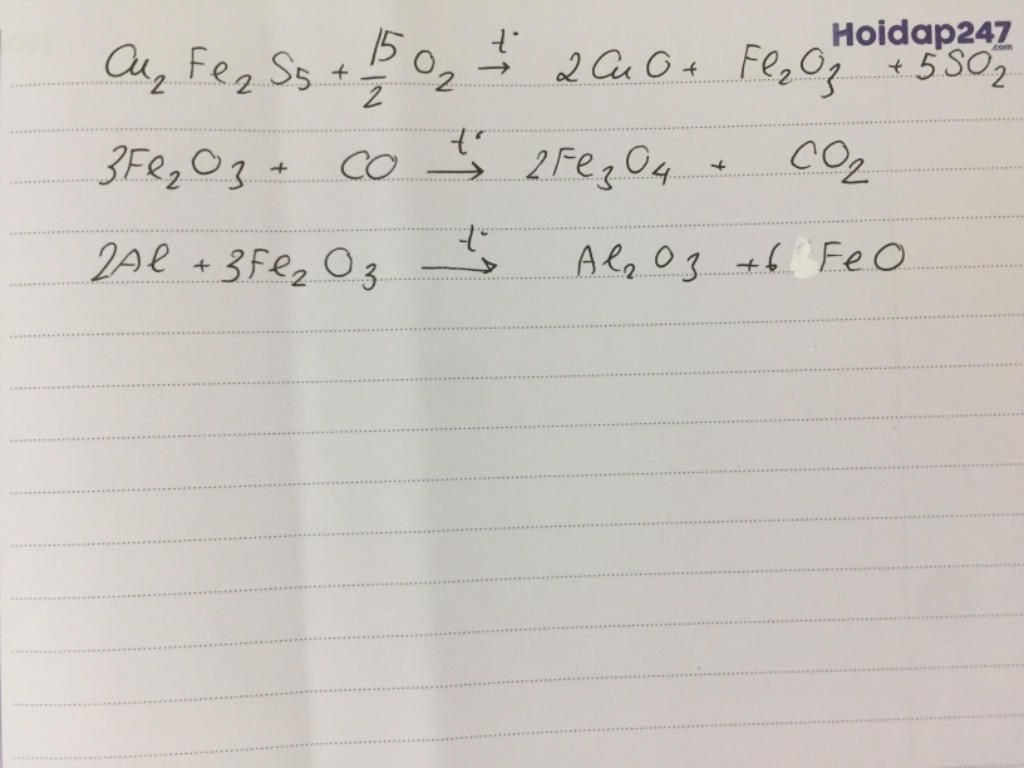 Hoidap247
.com
Cu₂Fe₂S₅ + 15/2 O₂ →t° 2CuO + Fe₂O₃ + 5SO₂
3Fe₂O₃ + CO →t° 2Fe₃O₄ + CO₂
2Al + 3Fe₂O₃ →t° Al₂O₃ + 6 FeO